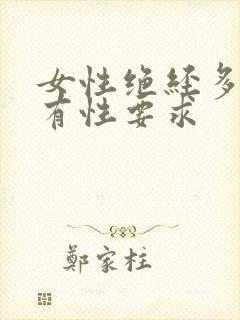 女性绝经多
有性要求
鄭家柱